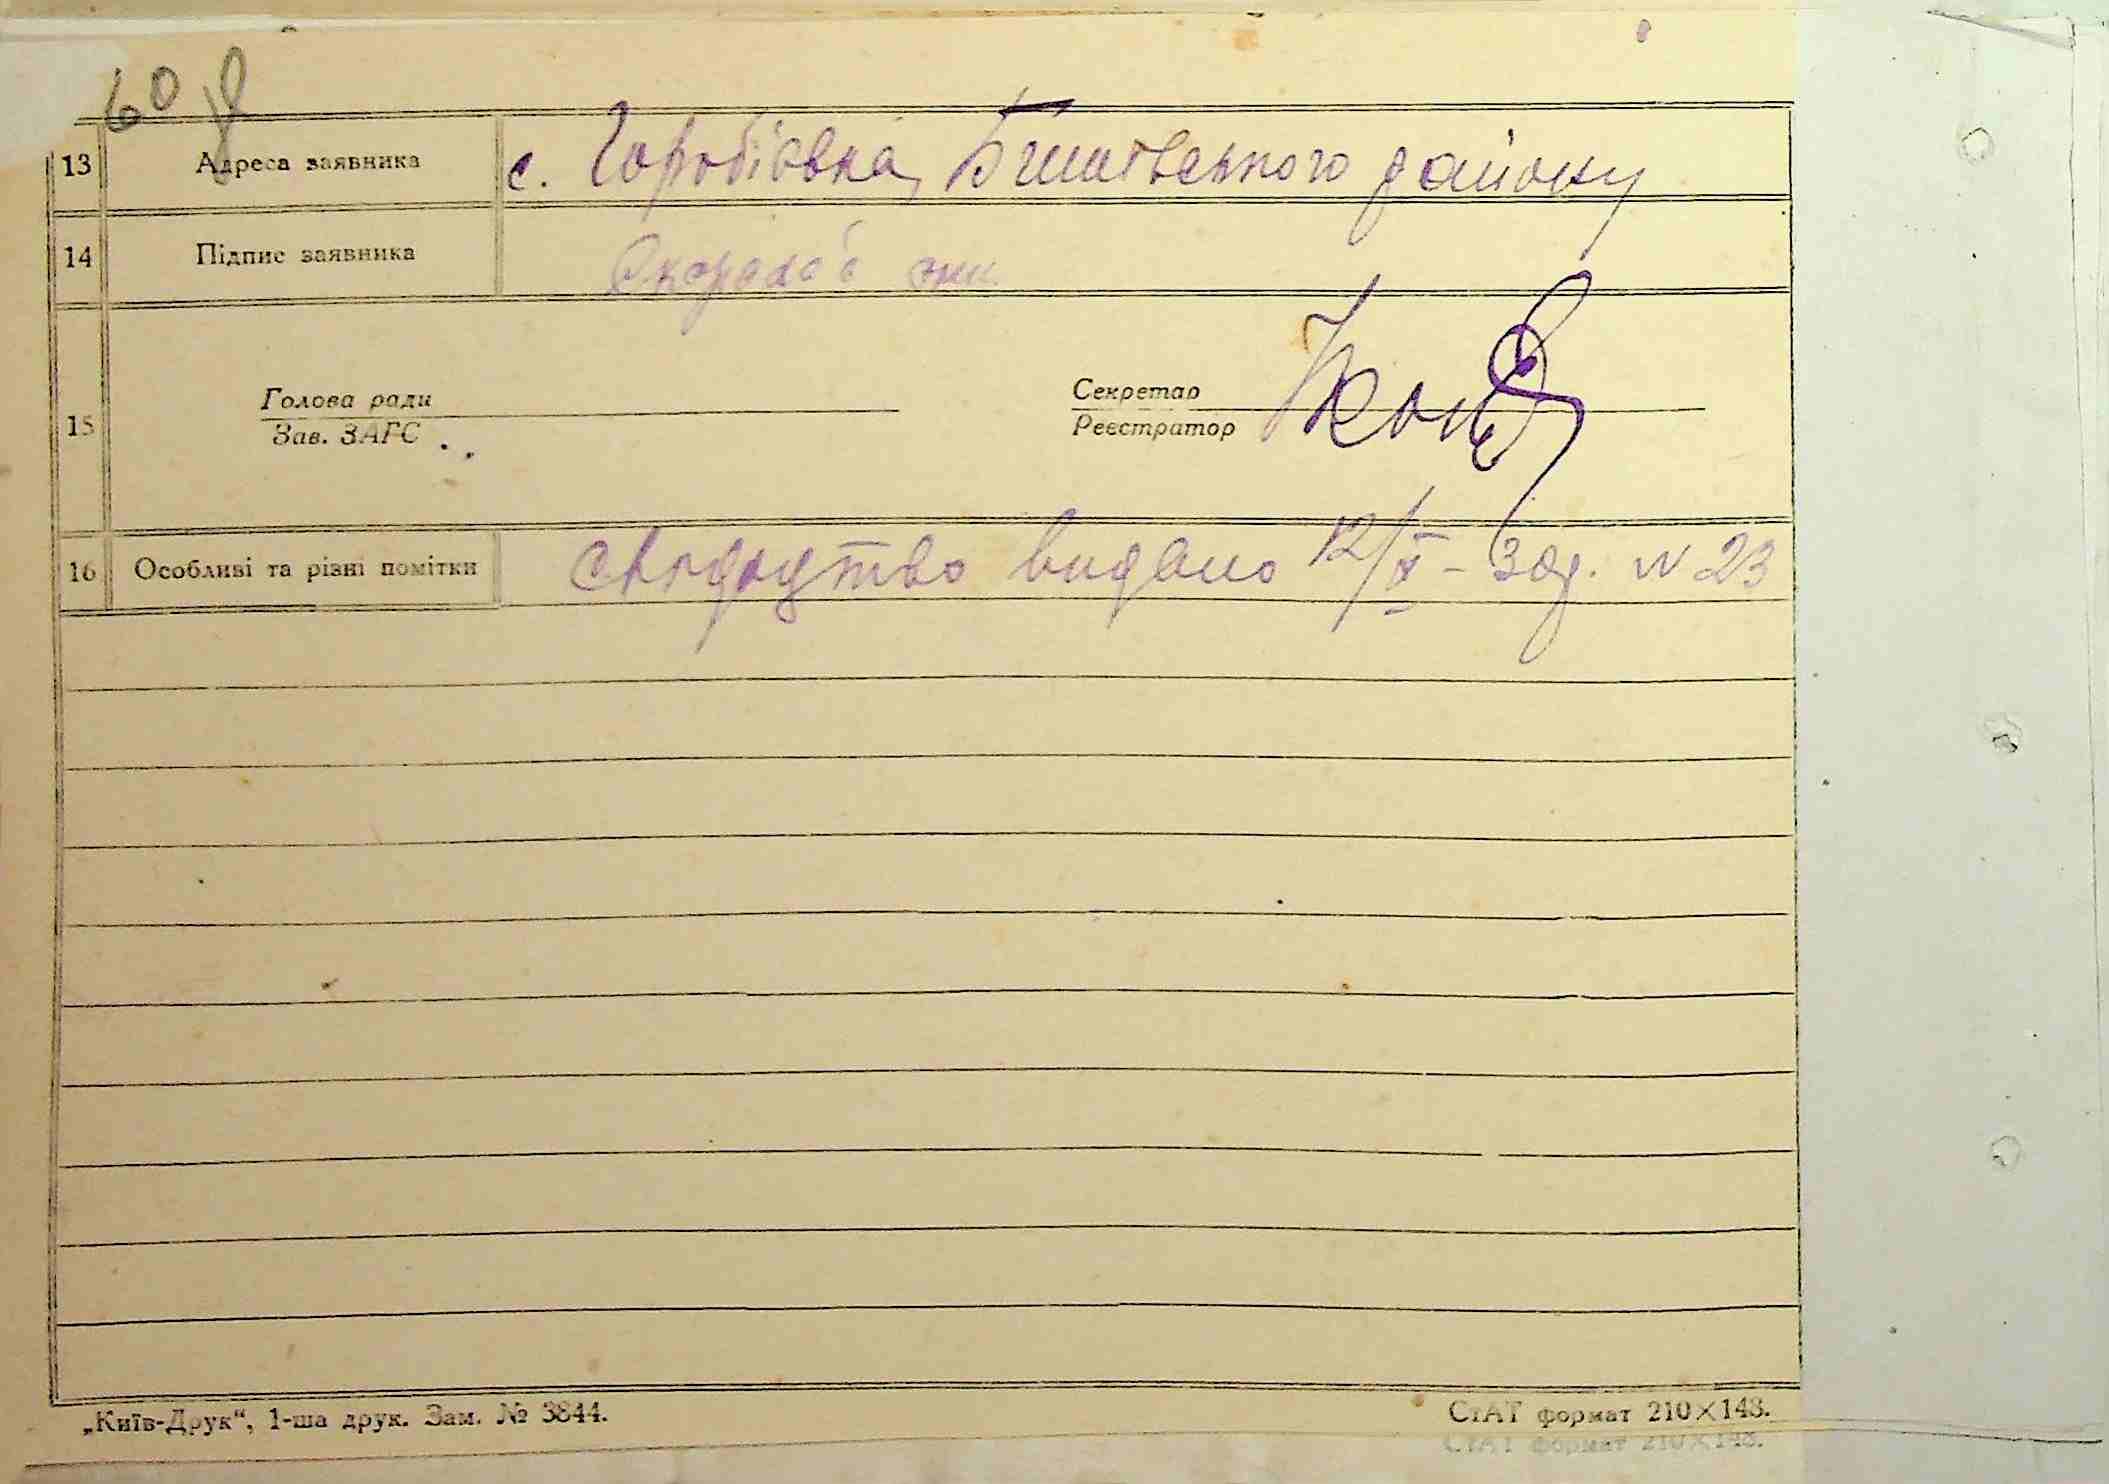 60
13 Адреса заявника с. Горобіевка, Бишівського району
14 Підпис заявника
15 Голова ради Секретар
Зав. ЗАГС Реєстратор
16 Особливі та різні помітки свідоцтво видано 12/X – зод. N 23
„Київ-Друк“, 1-ша друк. Зам. № 3844. СтАТ формат 210×148.
СтАТ формат 210×148.